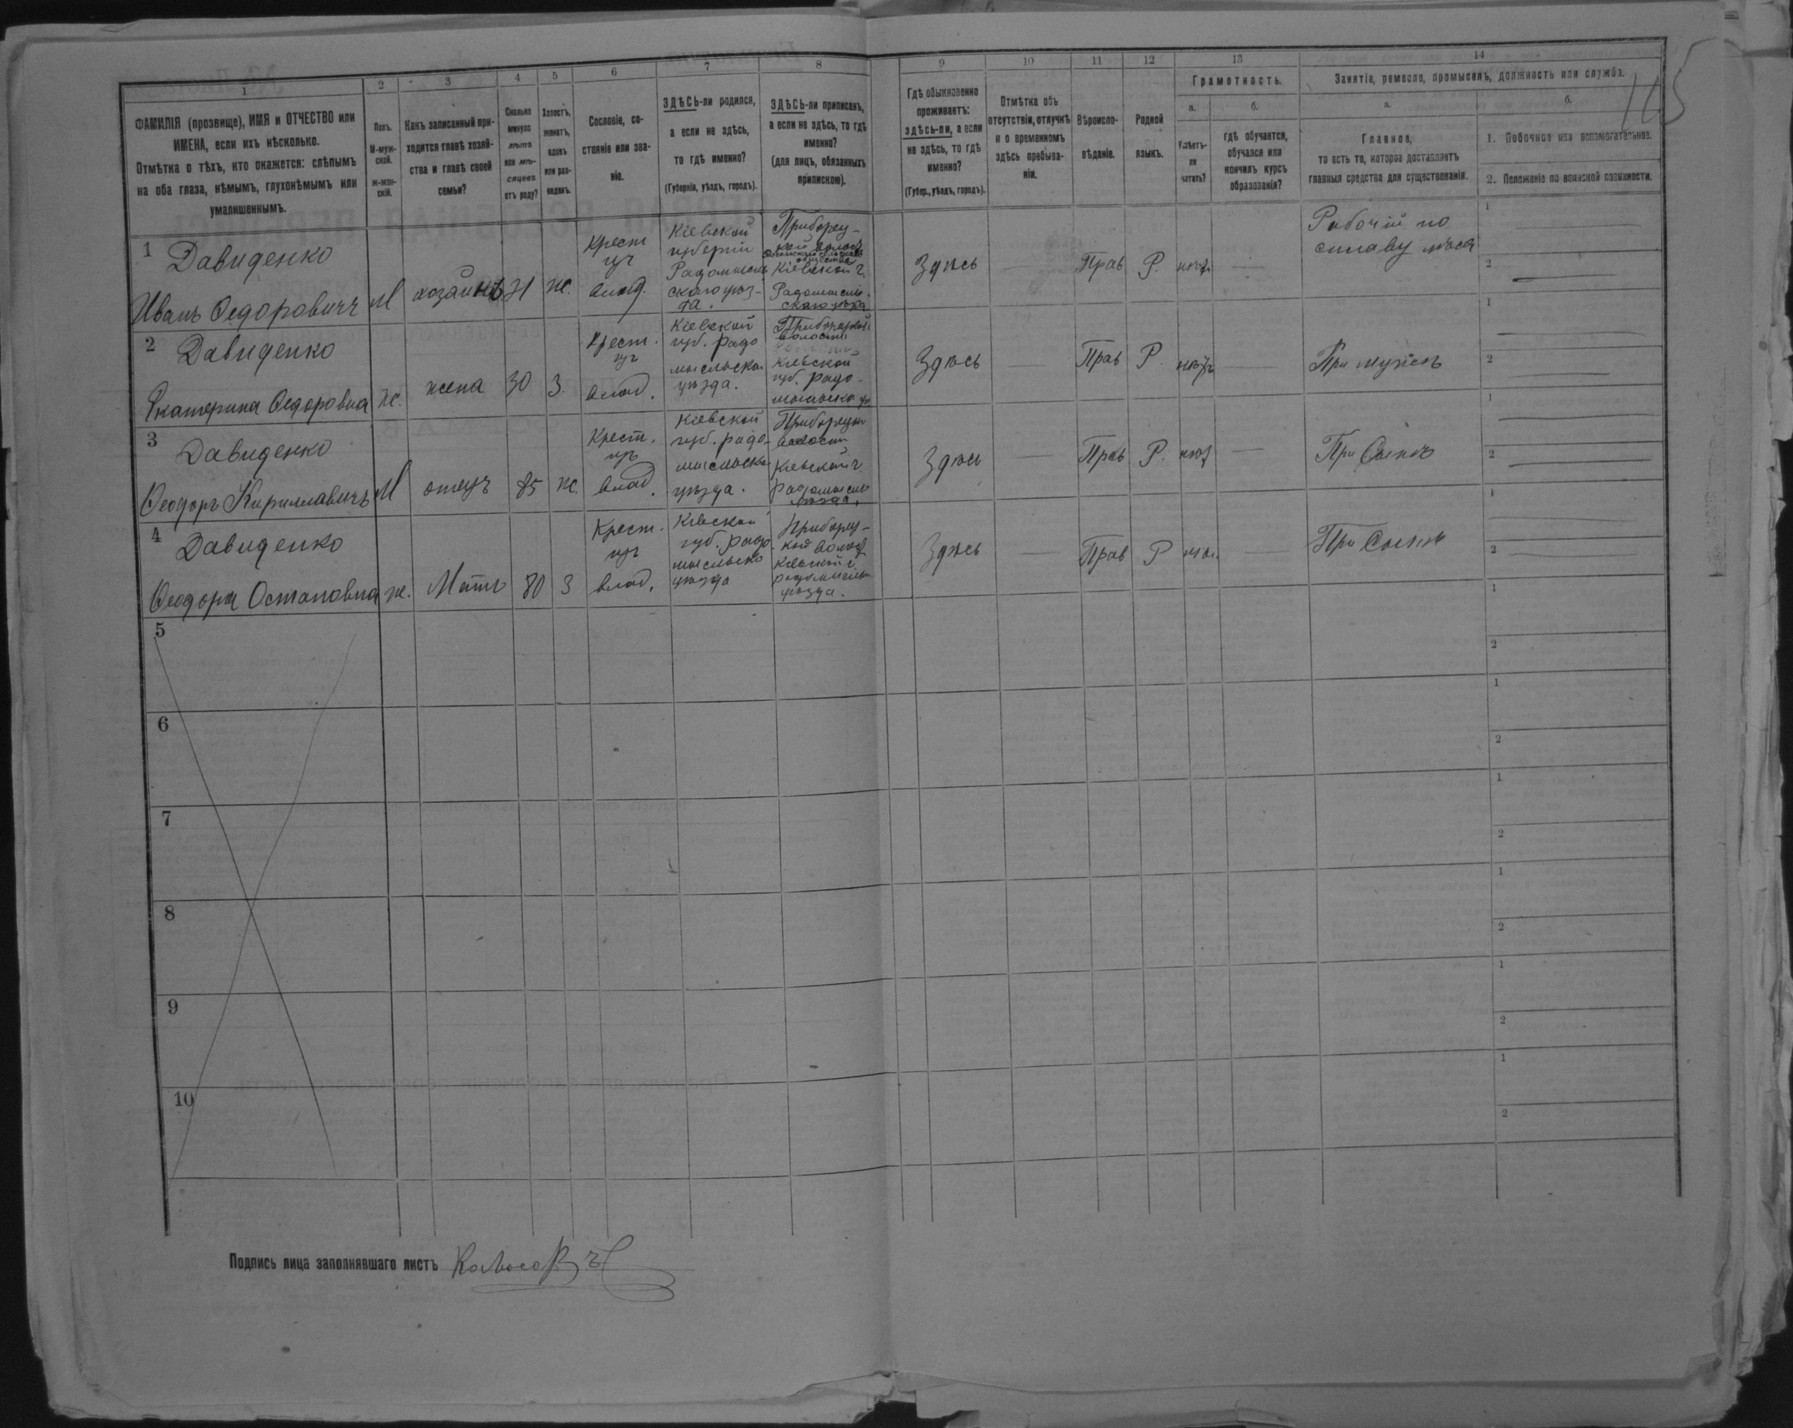 1
ФАМИЛІЯ (прозвище), ИМЯ и ОТЧЕСТВО или
ИМЕНА, если ихъ нѣсколько.
Отмѣтка о тѣхъ, кто окажется: слѣпымъ
на оба глаза, нѣмымъ, глухонѣмымъ или
умалишеннымъ.
2
Полъ.
М-муж-
ской.
ж-жен-
скій.
3
Какъ записанный при-
ходится главѣ хозяй-
ства и главѣ своей
семьи?
4
Сколько
минуло
лѣтъ
или мѣ-
сяцевъ
отъ роду?
5
Холостъ,
женатъ,
вдовъ
или раз-
веденъ.
6
Сословіе, со-
стояніе или зва-
ніе.
7
ЗДѢСЬ-ли родился,
а если не здѣсь,
то гдѣ именно?
(Губернія, уѣздъ, городъ).
8
ЗДѢСЬ-ли приписанъ,
а если не здѣсь, то гдѣ
именно?
(для лицъ, обязанныхъ
припискою).
9
Гдѣ обыкновенно
проживаетъ:
здѣсь-ли, а если
не здѣсь, то гдѣ
именно?
(Губер., уѣздъ, городъ).
10
Отмѣтка объ
отсутствіи, отлучкѣ
и о временномъ
здѣсь пребыва-
ніи.
11
Вѣроиспо-
вѣданіе.
12
Родной
языкъ.
13
Грамотность.
а.
Умѣетъ-
ли
читать?
б.
гдѣ обучается,
обучался или
кончилъ курсъ
образованія?
14
Занятіе, ремесло, промыселъ, должность или служба.
а.
Главное,
то есть то, которое доставляетъ
главныя средства для существованія.
б.
1. Побочное или вспомогательное.
2. Положеніе по воинской повинности.
165
1
Давиденко
Иванъ Ѳедоровичъ
М
хозяинъ
31
ж.
Крест
цъ
влад.
Кіевской
губерніи
Радомысль
скаго уѣз-
да.
Приборец-
кой волост
общества
Кіевской г.
Радомысль
скаго уѣзда
Здѣсь
Прав
Р.
нѣтъ
Рабочій по
сплаву лѣса
1
2
2
Давиденко
Екатерина Ѳедоровна
ж.
жена
30
З.
Крест.
цъ
влад.
Кіевской
губ. радо
мысльска
уѣзда.
Приборской
волости
Кіевской
губ. радо-
мысльска
Здѣсь
Прав
Р.
нѣтъ
При мужѣ
1
2
3
Давиденко
Ѳеодоръ Кирилловичъ
М
отецъ
85
ж.
Крест.
цъ
влад.
Кіевской
губ. радо-
мысльска
уѣзда.
Приборецк
волости
Кіевской г.
радомысль
уѣзда.
Здѣсь
Прав
Р.
нѣт
При Сынѣ
1
2
4
Давиденко
Ѳеодора Остаповна
ж.
Мать
80
З
Крест.
цъ
влад.
Кіевской
губ. радо
мысльско
уѣзда
Приборец-
кой волост
Кіевской г.
радомысль
уѣзда.
Здѣсь
Прав
Р
При Сынѣ
1
2
5
1
2
6
1
2
7
1
2
8
1
2
9
1
2
10
1
2
Подпись лица заполнявшаго листъ